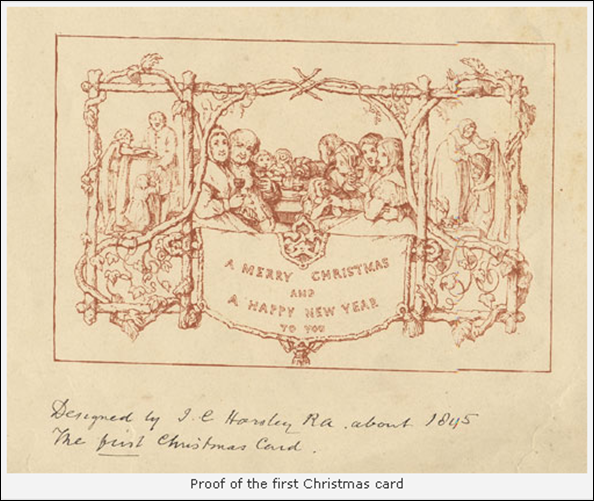 A MERRY CHRISTMAS
AND
A HAPPY NEW YEAR
TO YOU
Designed by J. C Horsley RA. about 1845
The first Christmas Card.
Proof of the first Christmas card